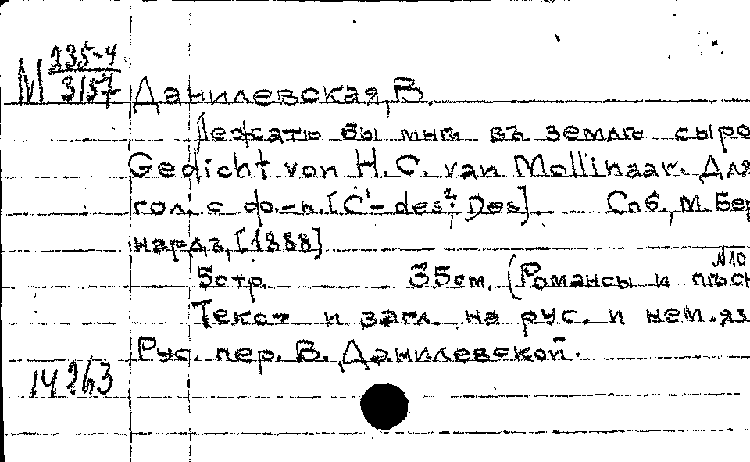 М 235-4
3157
Данилевская, В.
Лежать бы мнѣ въ землѣ сыро
Gedicht von H. C. van Mollinaar. Для
гол. с ф.-п. [C¹-des² Des]. Спб., М. Бер
нардъ, [1888]
5 стр. 35 см. (Романсы и пѣсн
№10
Текст и загл. на рус. и нем. яз
Рус. пер. В. Данилевской.
14263